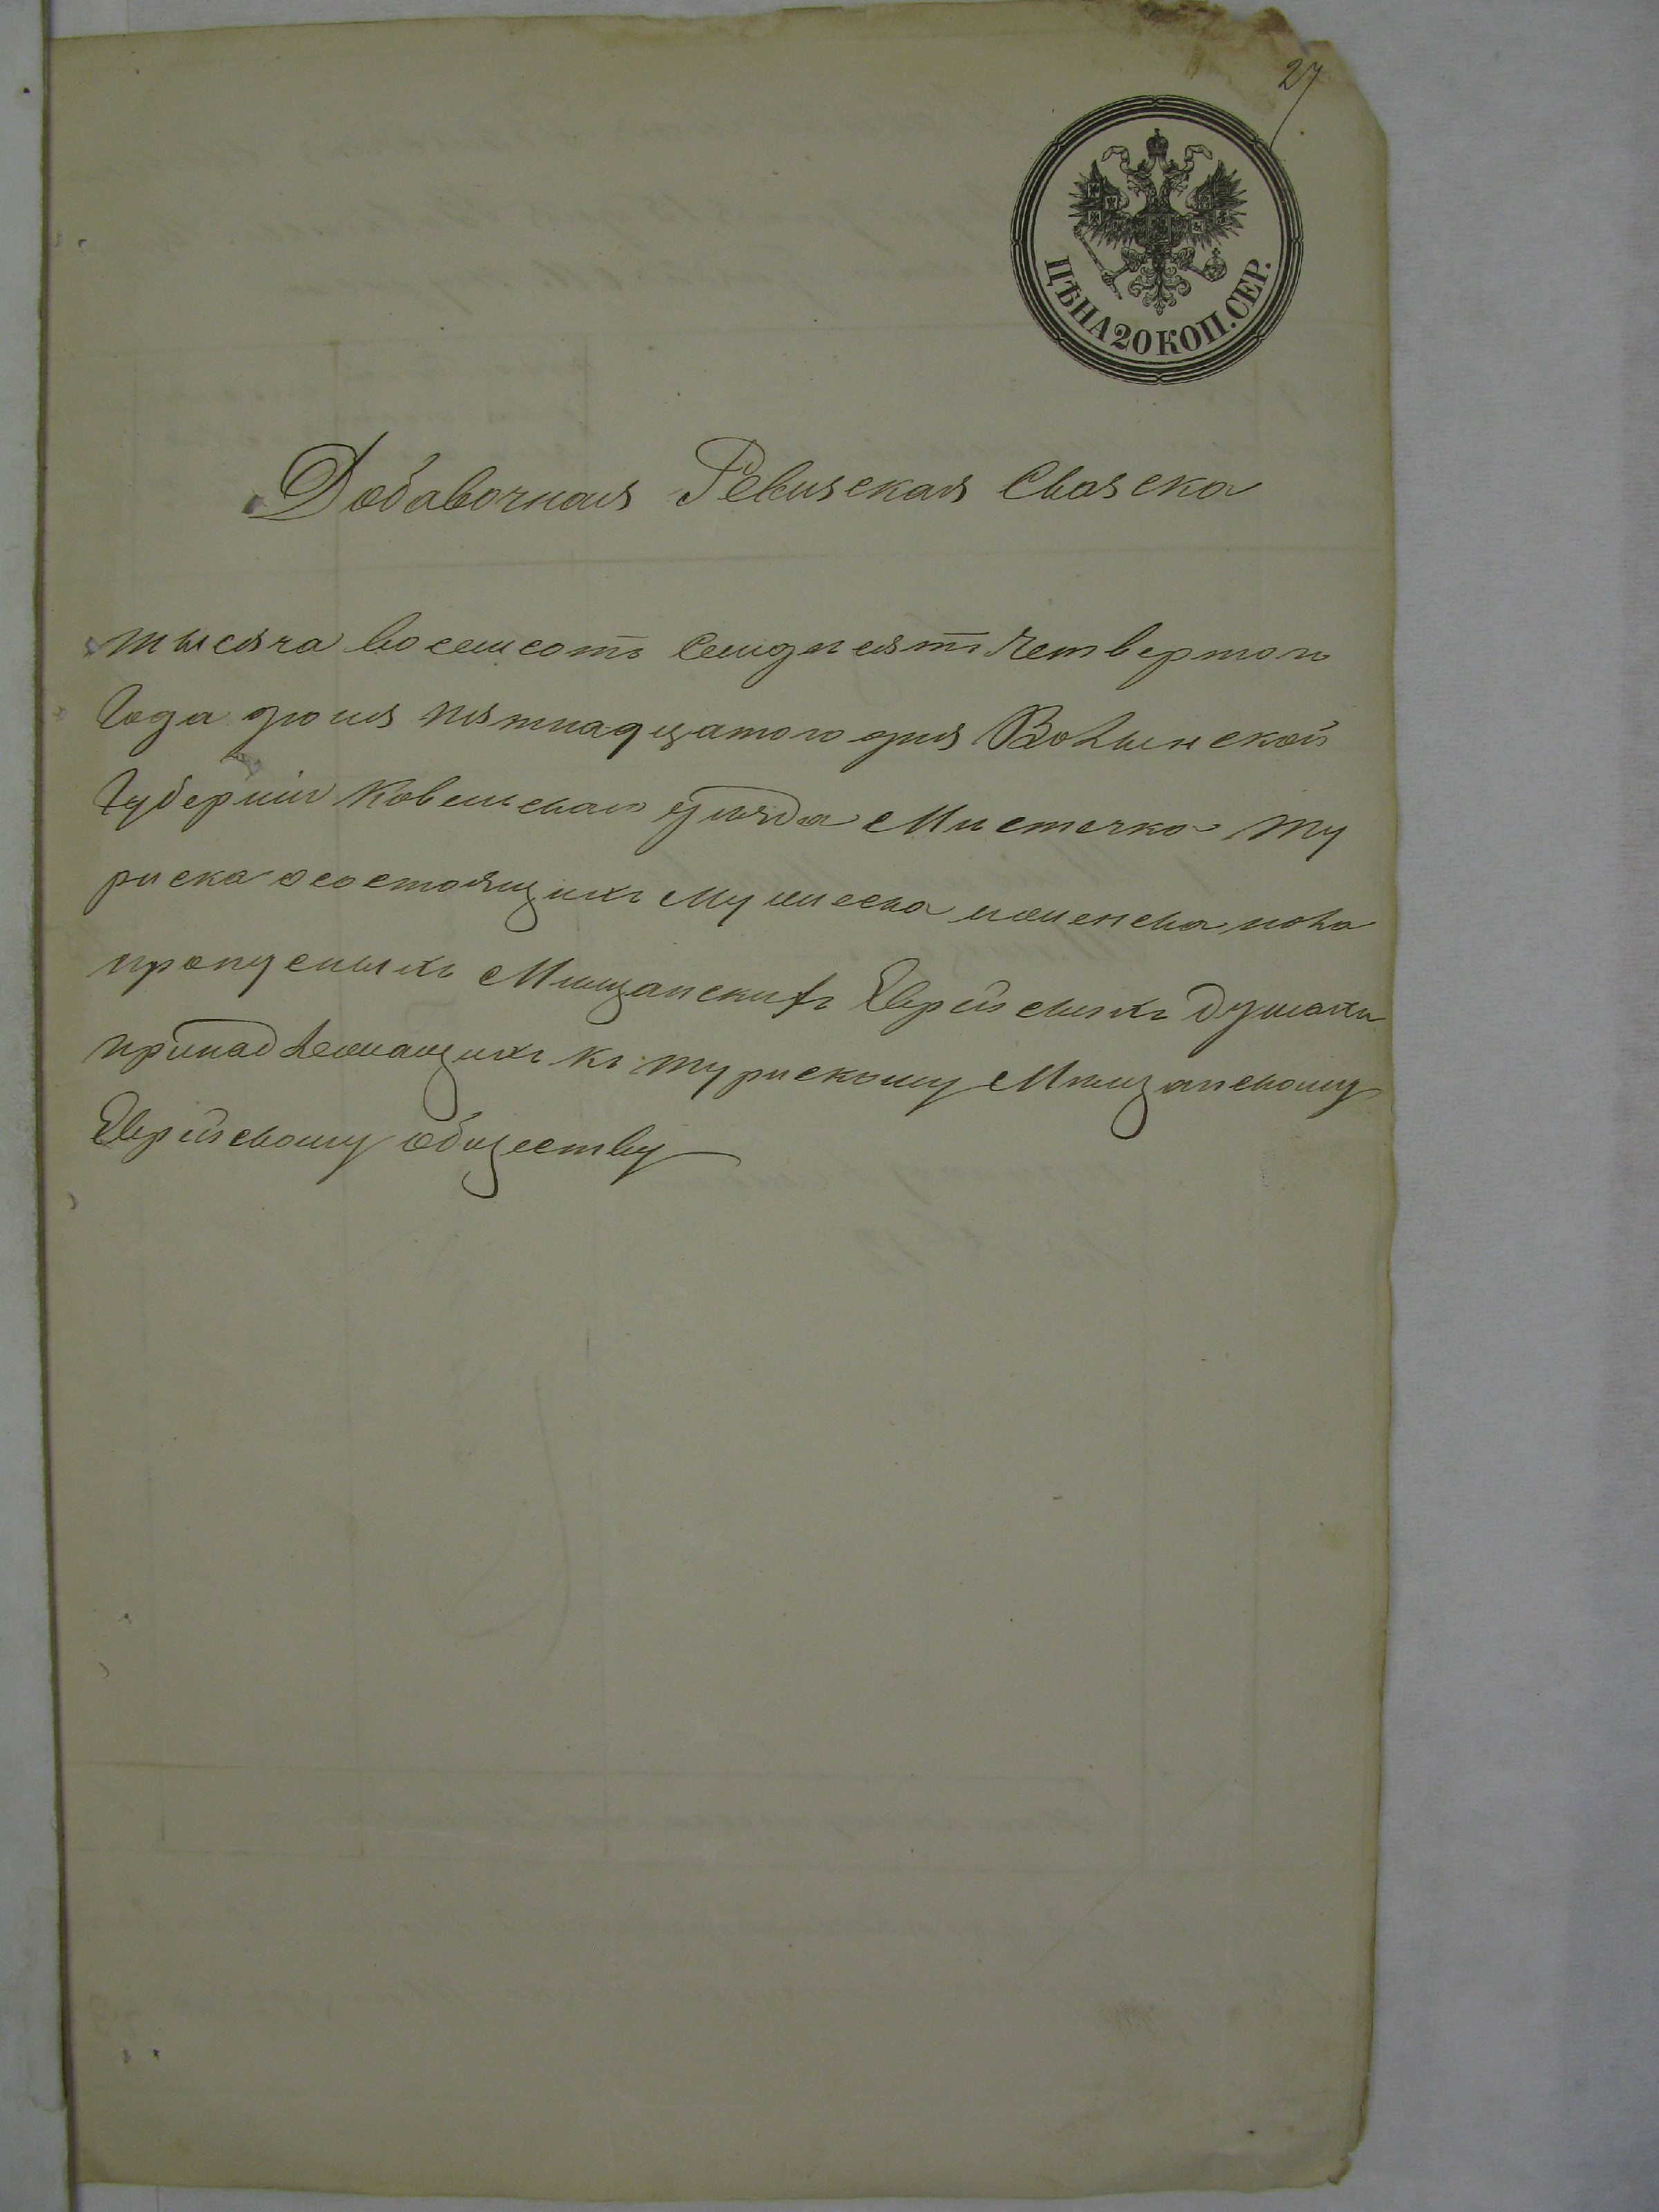 27
ЦѢНА 20 КОП. СЕР.
Добавочная Ревизская Сказска
тысяча восемсотъ Семдисятъ Четвертого
Года Июня пятнадцатого дня Волынской
Губернии Ковельскаго уѣзда Мистечка Ту
риска о состоящихъ Мужеска женска пола
пропусныхъ Мищанскихъ Еврейскихъ душахъ
принадлежащихъ къ Турискому Мищанскому
Еврейскому обществу